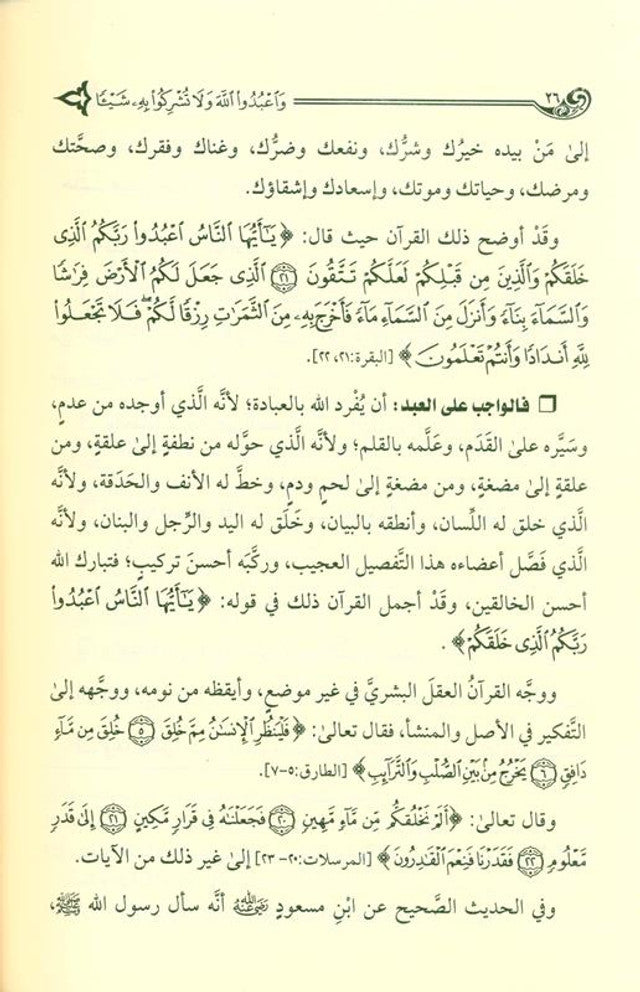 ٢٦ وَاعْبُدُوا اللَّهَ وَلَا تُشْرِكُوا بِهِ شَيْئًا
إلىٰ مَنْ بيده خيرُك وشرُّك، ونفعك وضرُّك، وغناك وفقرك، وصحَّتك
ومرضك، وحياتك وموتك، وإسعادك وإشقاؤك.
وقَدْ أوضح ذلك القرآن حيث قال: ﴿ يَٰٓأَيُّهَا ٱلنَّاسُ ٱعْبُدُوا۟ رَبَّكُمُ ٱلَّذِى
خَلَقَكُمْ وَٱلَّذِينَ مِن قَبْلِكُمْ لَعَلَّكُمْ تَتَّقُونَ ۝٢١ ٱلَّذِى جَعَلَ لَكُمُ ٱلْأَرْضَ فِرَٰشًا
وَٱلسَّمَآءَ بِنَآءً وَأَنزَلَ مِنَ ٱلسَّمَآءِ مَآءً فَأَخْرَجَ بِهِۦ مِنَ ٱلثَّمَرَٰتِ رِزْقًا لَّكُمْ ۖ فَلَا تَجْعَلُوا۟
لِلَّهِ أَندَادًا وَأَنتُمْ تَعْلَمُونَ ﴾ [البقرة:٢١، ٢٢].
❑ فالواجب على العبد: أن يُفْرد الله بالعبادة؛ لأنَّه الَّذي أوجده من عدمٍ،
وسَيَّره علىٰ القَدَم، وعَلَّمه بالقلم؛ ولأنَّه الَّذي حوَّله من نطفةٍ إلىٰ علقةٍ، ومن
علقةٍ إلىٰ مضغةٍ، ومن مضغةٍ إلىٰ لحمٍ ودمٍ، وخطَّ له الأنف والحَدَقة، ولأنَّه
الَّذي خلق له اللِّسان، وأنطقه بالبيان، وخَلَق له اليد والرِّجل والبنان، ولأنَّه
الَّذي فَصَّل أعضاءه هذا التَّفصيل العجيب، وركَّبَه أحسنَ تركيبٍ؛ فتبارك الله
أحسن الخالقين، وقَدْ أجمل القرآن ذلك في قوله: ﴿ يَٰٓأَيُّهَا ٱلنَّاسُ ٱعْبُدُوا۟
رَبَّكُمُ ٱلَّذِى خَلَقَكُمْ ﴾ .
ووجَّه القرآنُ العقلَ البشريَّ في غير موضعٍ، وأيقظه من نومه، ووجَّهه إلىٰ
التَّفكير في الأصل والمنشأ، فقال تعالىٰ: ﴿ فَلْيَنظُرِ ٱلْإِنسَٰنُ مِمَّ خُلِقَ ۝٥ خُلِقَ مِن مَّآءٍ
دَافِقٍ ۝٦ يَخْرُجُ مِنۢ بَيْنِ ٱلصُّلْبِ وَٱلتَّرَآئِبِ ﴾ [الطارق:٥-٧].
وقال تعالىٰ: ﴿ أَلَمْ نَخْلُقكُّم مِّن مَّآءٍ مَّهِينٍ ۝٢٠ فَجَعَلْنَٰهُ فِى قَرَارٍ مَّكِينٍ ۝٢١ إِلَىٰ قَدَرٍ
مَّعْلُومٍ ۝٢٢ فَقَدَرْنَا فَنِعْمَ ٱلْقَٰدِرُونَ ﴾ [المرسلات:٢٠-٢٣] إلىٰ غير ذلك من الآيات.
وفي الحديث الصَّحيح عن ابْنِ مسعودٍ رَضِيَ اللَّهُ عَنْهُ أنَّه سأل رسول الله ﷺ،